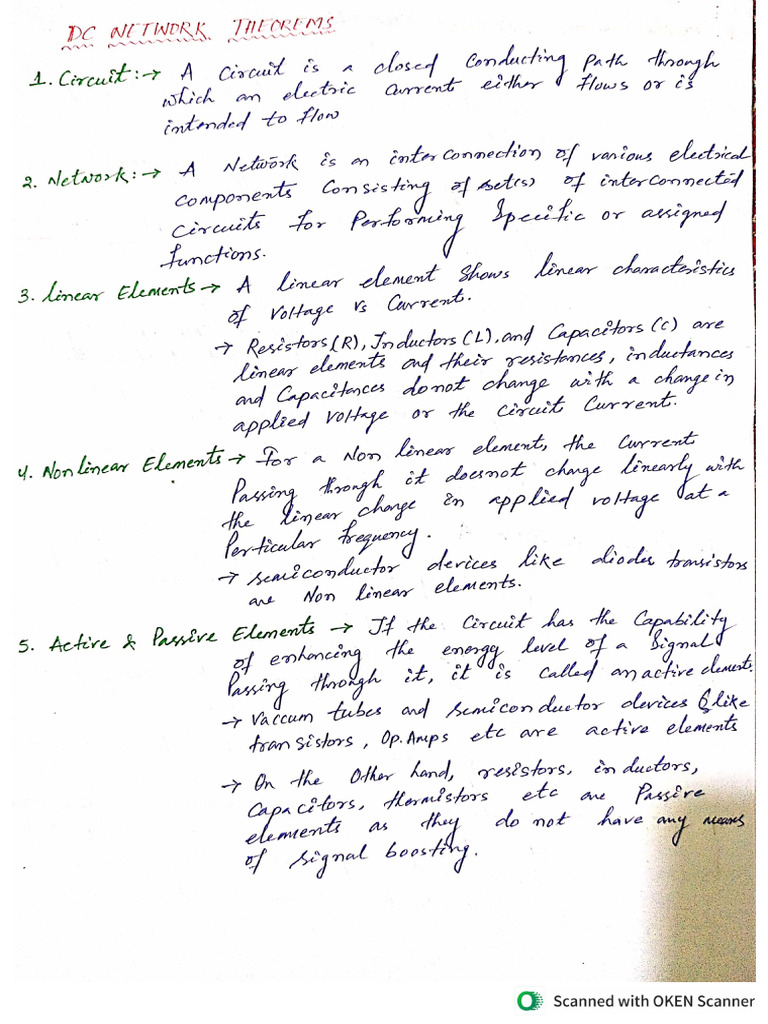 DC NETWORK THEOREMS
1. Circuit:→ A Circuit is a closed Conducting Path through
which an electric Current either flows or is
intended to flow
2. Network:→ A Network is an interconnection of various electrical
components Consisting of set(s) of interconnected
Circuits for Performing Specific or assigned
functions.
3. linear Elements→ A linear element shows linear characteristics
of Voltage vs Current.
→ Resistors(R), Inductors(L), and Capacitors(C) are
linear elements and their resistances, inductances
and Capacitances donot change with a change in
applied Voltage or the Circuit Current.
4. Nonlinear Elements→ For a Non linear element, the Current
Passing through it doesnot change linearly with
the linear change in applied voltage at a
Perticular frequency.
→ semiconductor devices like diodes transistors
are Non linear elements.
5. Active & Passive Elements → If the Circuit has the Capability
of enhancing the energy level of a Signal
Passing through it, it is called an active element.
→ Vaccum tubes and semiconductor devices like
transistors, Op.Amps etc are active elements
→ On the Other hand, resistors, inductors,
Capacitors, thermistors etc are Passive
elements as they do not have any means
of signal boosting.
Scanned with OKEN Scanner